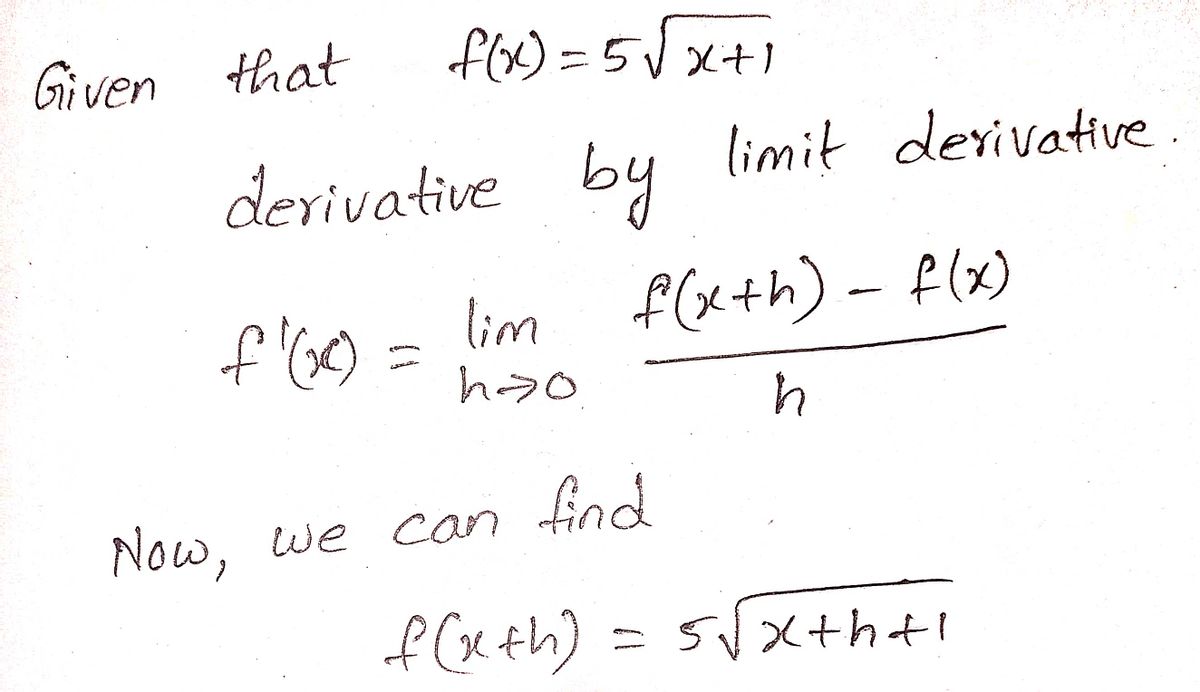 Given that f(x) = 5√x+1
derivative by limit derivative.
f'(x) = lim h→0 f(x+h) - f(x) / h
Now, we can find
f(x+h) = 5√x+h+1